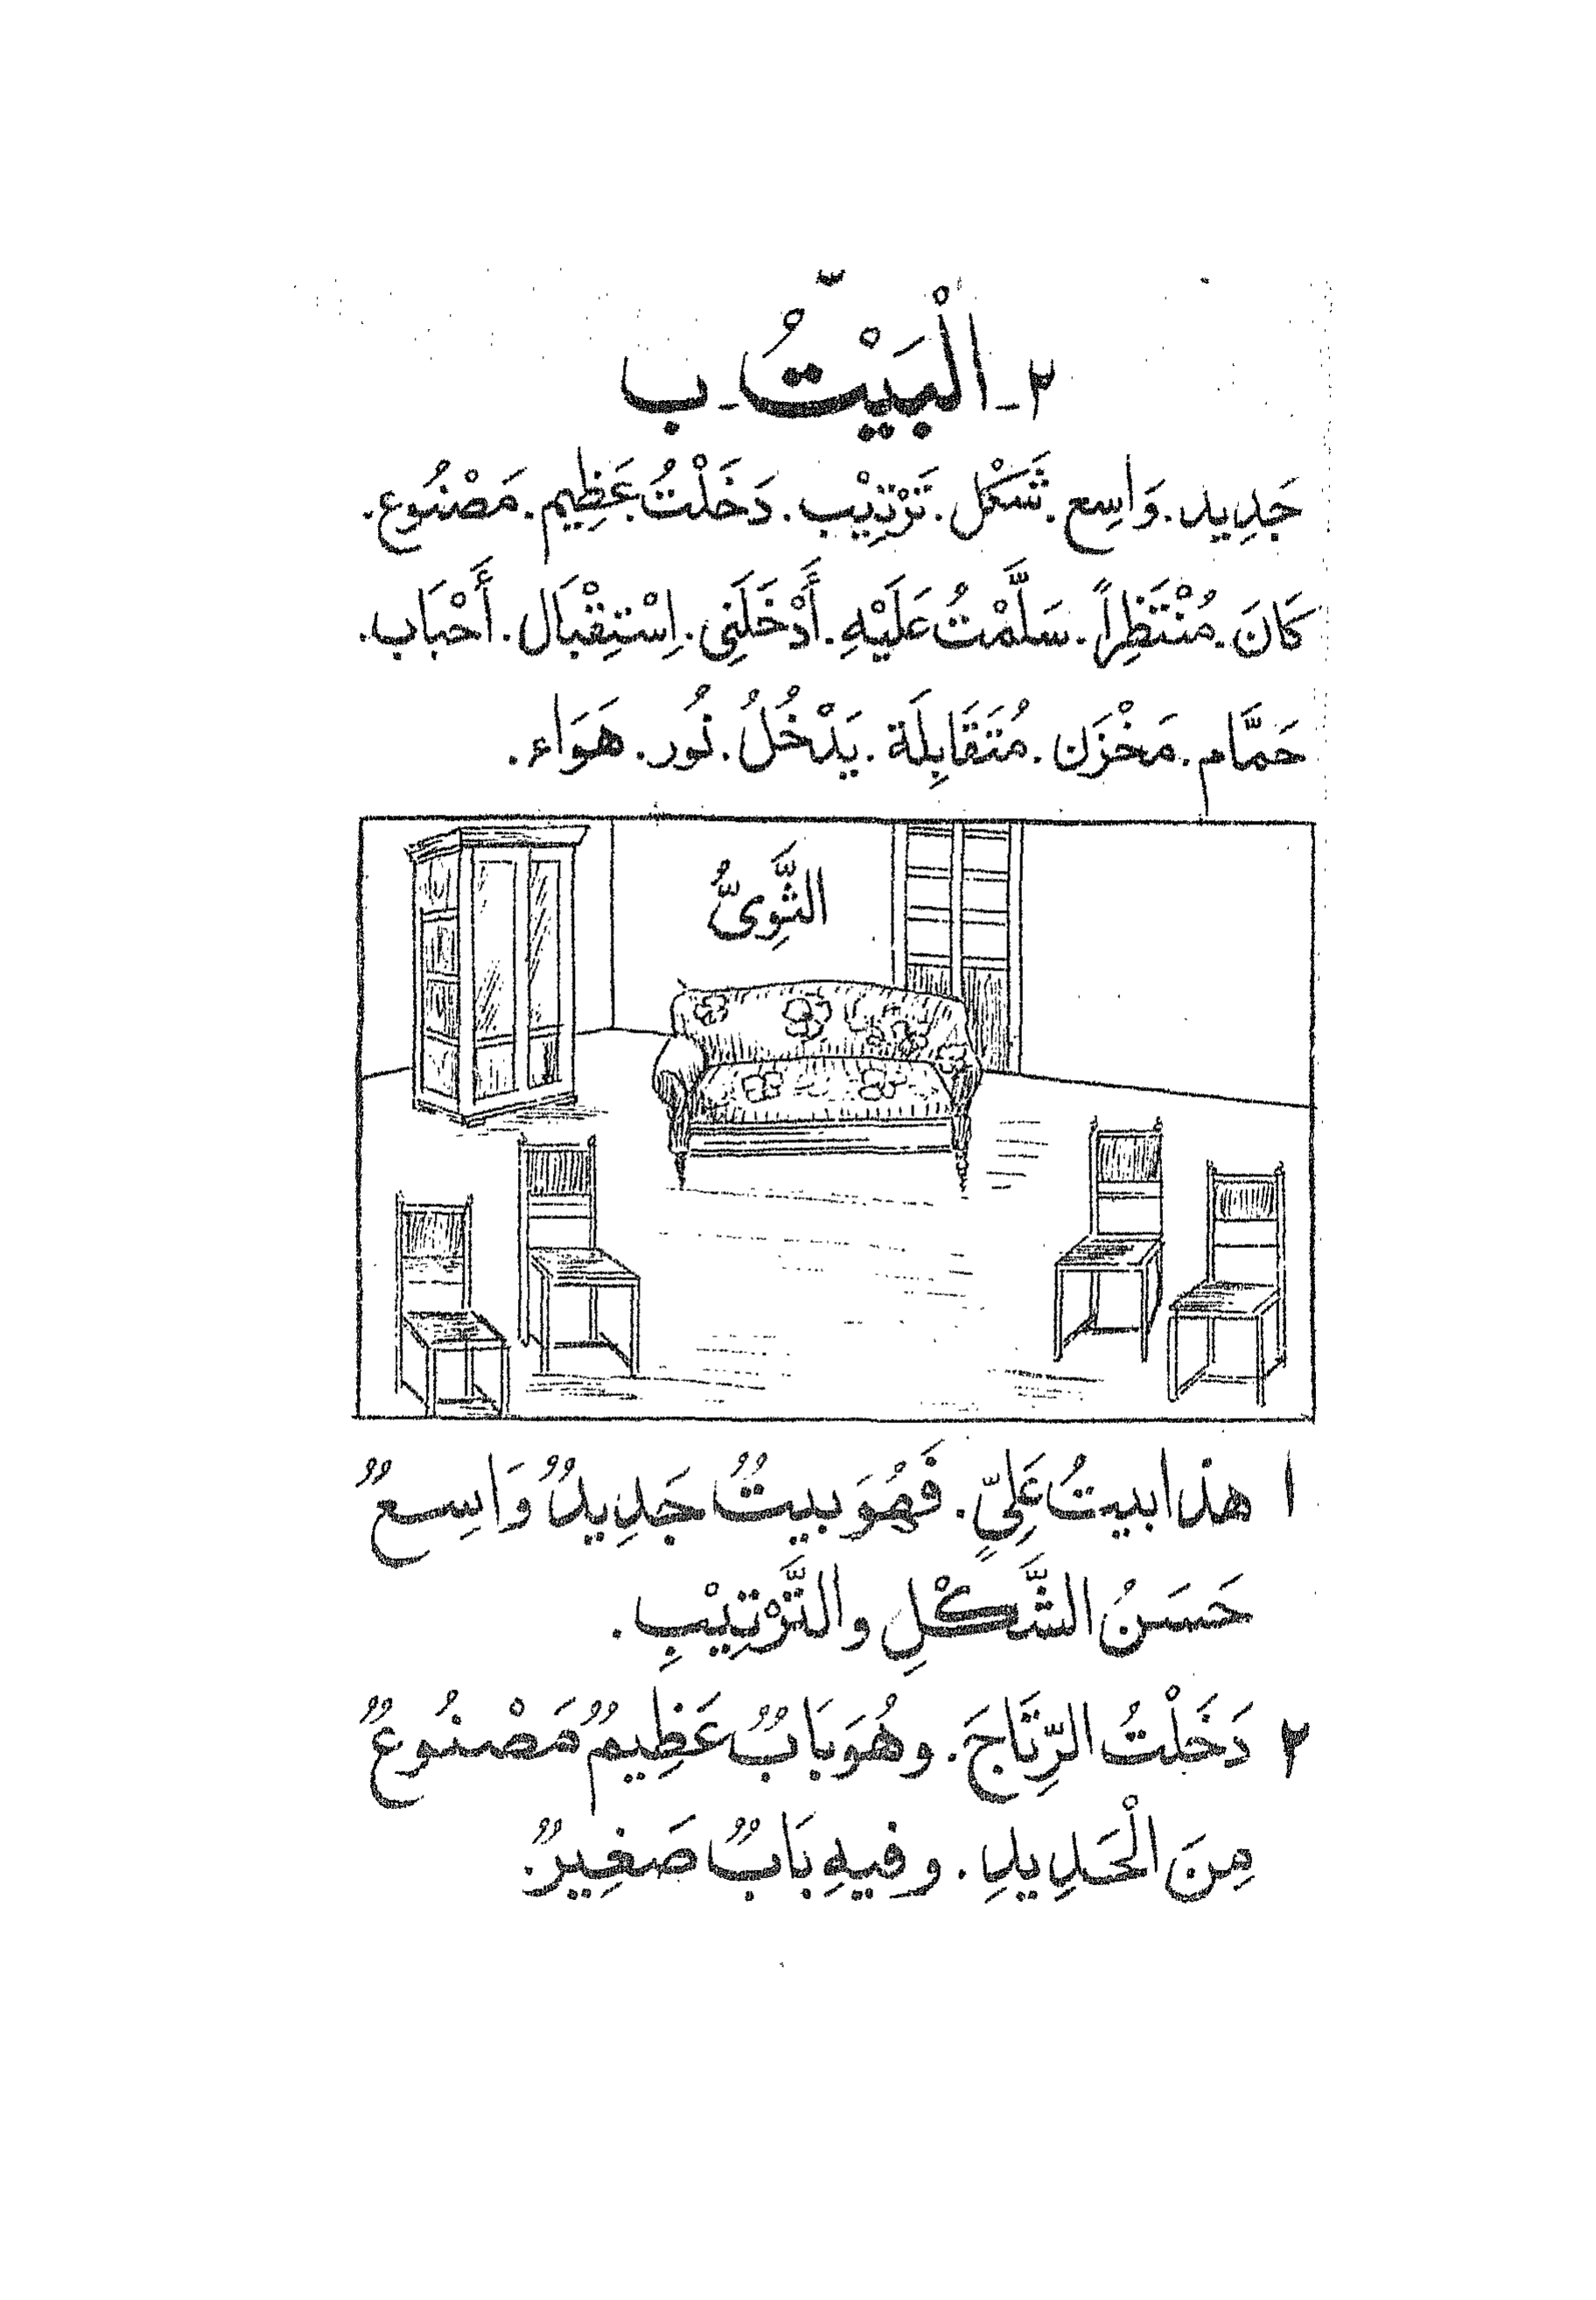 ٢ـ الْبَيْتُ ـ ب
جَدِيد. وَاسِع. شَكْل. تَرْتِيْب. دَخَلْتُ. عَظِيم. مَصْنُوع.
كَانَ. مُنْتَظِراً. سَلَّمْتُ عَلَيْهِ. أَدْخَلَنِى. اِسْتِقْبَال. أَحْبَاب.
حَمَّام. مَخْزَن. مُتَقَابِلَة. يَدْخُلُ. نُور. هَوَاء.
الثَّوِىُّ
١ هذا بيتُ عَلِىٍّ. فَهُوَ بيتٌ جَدِيدٌ وَاسِعٌ
حَسَنُ الشَّكْلِ والتَّرْتِيْبِ.
٢ دَخَلْتُ الرِّتَاجَ. وهُوَ بَابٌ عَظِيمٌ مَصْنُوعٌ
مِنَ الْحَدِيدِ. وفِيهِ بَابٌ صَغِيرٌ.